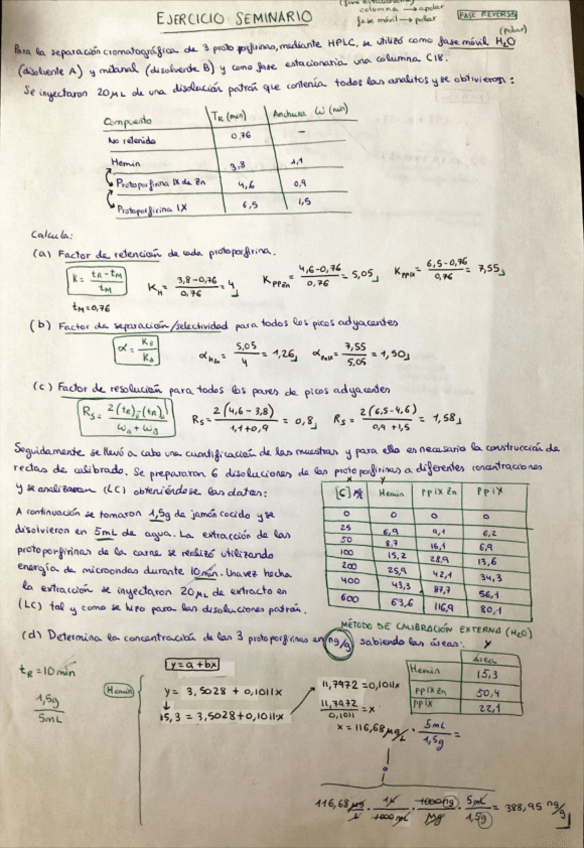 (fase estacionaria)
columna → apolar
fase móvil → polar
FASE REVERSA
(polar)
EJERCICIO SEMINARIO
Para la separación cromatográfica de 3 protoporfirinas, mediante HPLC, se utilizó como fase móvil H₂O
(disolvente A) y metanol (disolvente B) y como fase estacionaria una columna C18.
Se inyectaron 20 μL de una disolución patrón que contenía todos los analitos y se obtuvieron:
Compuesto TR (min) Anchura ω (min)
No retenido 0,76 -
Hemin 3,8 1,1
Protoporfirina IX de Zn 4,6 0,9
Protoporfirina IX 6,5 1,5
Calcula:
(a) Factor de retención de cada protoporfirina.
K = (tR - tM)/tM KH = (3,8-0,76)/0,76 = 4 KPPZn = (4,6-0,76)/0,76 = 5,05 KPPIX = (6,5-0,76)/0,76 = 7,55
tM = 0,76
(b) Factor de separación/selectividad para todos los picos adyacentes
α = KB/KA α = 5,05/4 = 1,26 α = 7,55/5,05 = 1,50
(c) Factor de resolución para todos los pares de picos adyacentes
RS = 2((tR)B - (tR)A)/(ωA + ωB) RS = 2(4,6 - 3,8)/(1,1 + 0,9) = 0,8 RS = 2(6,5 - 4,6)/(0,9 + 1,5) = 1,58
Seguidamente se llevó a cabo una cuantificación de las muestras y para ello es necesario la construcción de
rectas de calibrado. Se prepararon 6 disoluciones de las protoporfirinas a diferentes concentraciones
y se analizaron (LC) obteniéndose los datos:
x y
[C] Hemin PPIX Zn PPIX
0 0 0 0
25 6,9 9,1 6,2
50 8,7 16,1 6,9
100 15,2 28,9 13,6
200 25,9 42,1 34,3
400 43,3 87,7 56,1
600 63,6 116,9 80,1
A continuación se tomaron 1,5g de jamón cocido y se
disolvieron en 5mL de agua. La extracción de las
protoporfirinas de la carne se realizó utilizando
energía de microondas durante 10 min. Una vez hecha
la extracción se inyectaron 20 μL de extracto en
(LC) tal y como se hizo para las disoluciones patrón.
MÉTODO DE CALIBRACIÓN EXTERNA (H₂O)
(d) Determina la concentración de las 3 protoporfirinas en ng/g sabiendo las áreas:
y
área
Hemin 15,3
PPIX Zn 50,4
PPIX 22,1
tR = 10 min
1,5g/5mL
Hemin
y = a + bx
y = 3,5028 + 0,1011x
15,3 = 3,5028 + 0,1011x
11,7972 = 0,1011x
11,7972/0,1011 = x
x = 116,68 μg/L · 5mL/1,5g =
116,68 μg/L · 1L/1000 mL · 1000 ng/μg · 5mL/1,5g = 388,95 ng/g